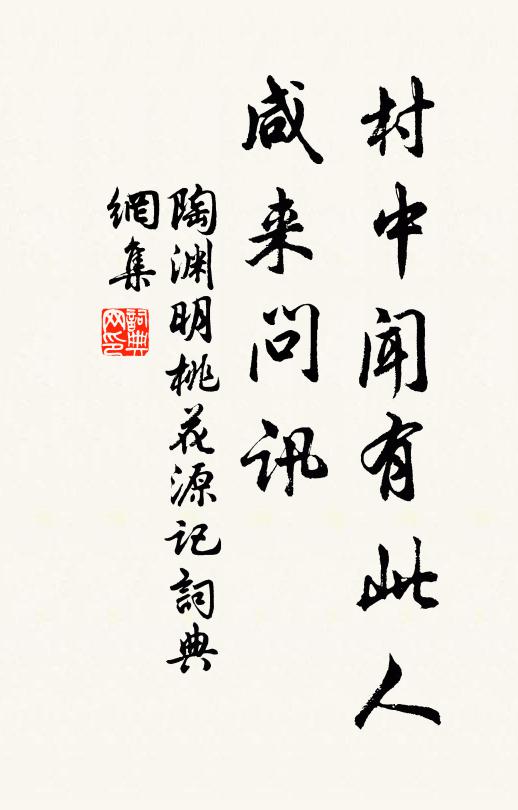 村中闻有此人
咸来问讯
陶渊明桃花源记詞典
網集
詞典
网印